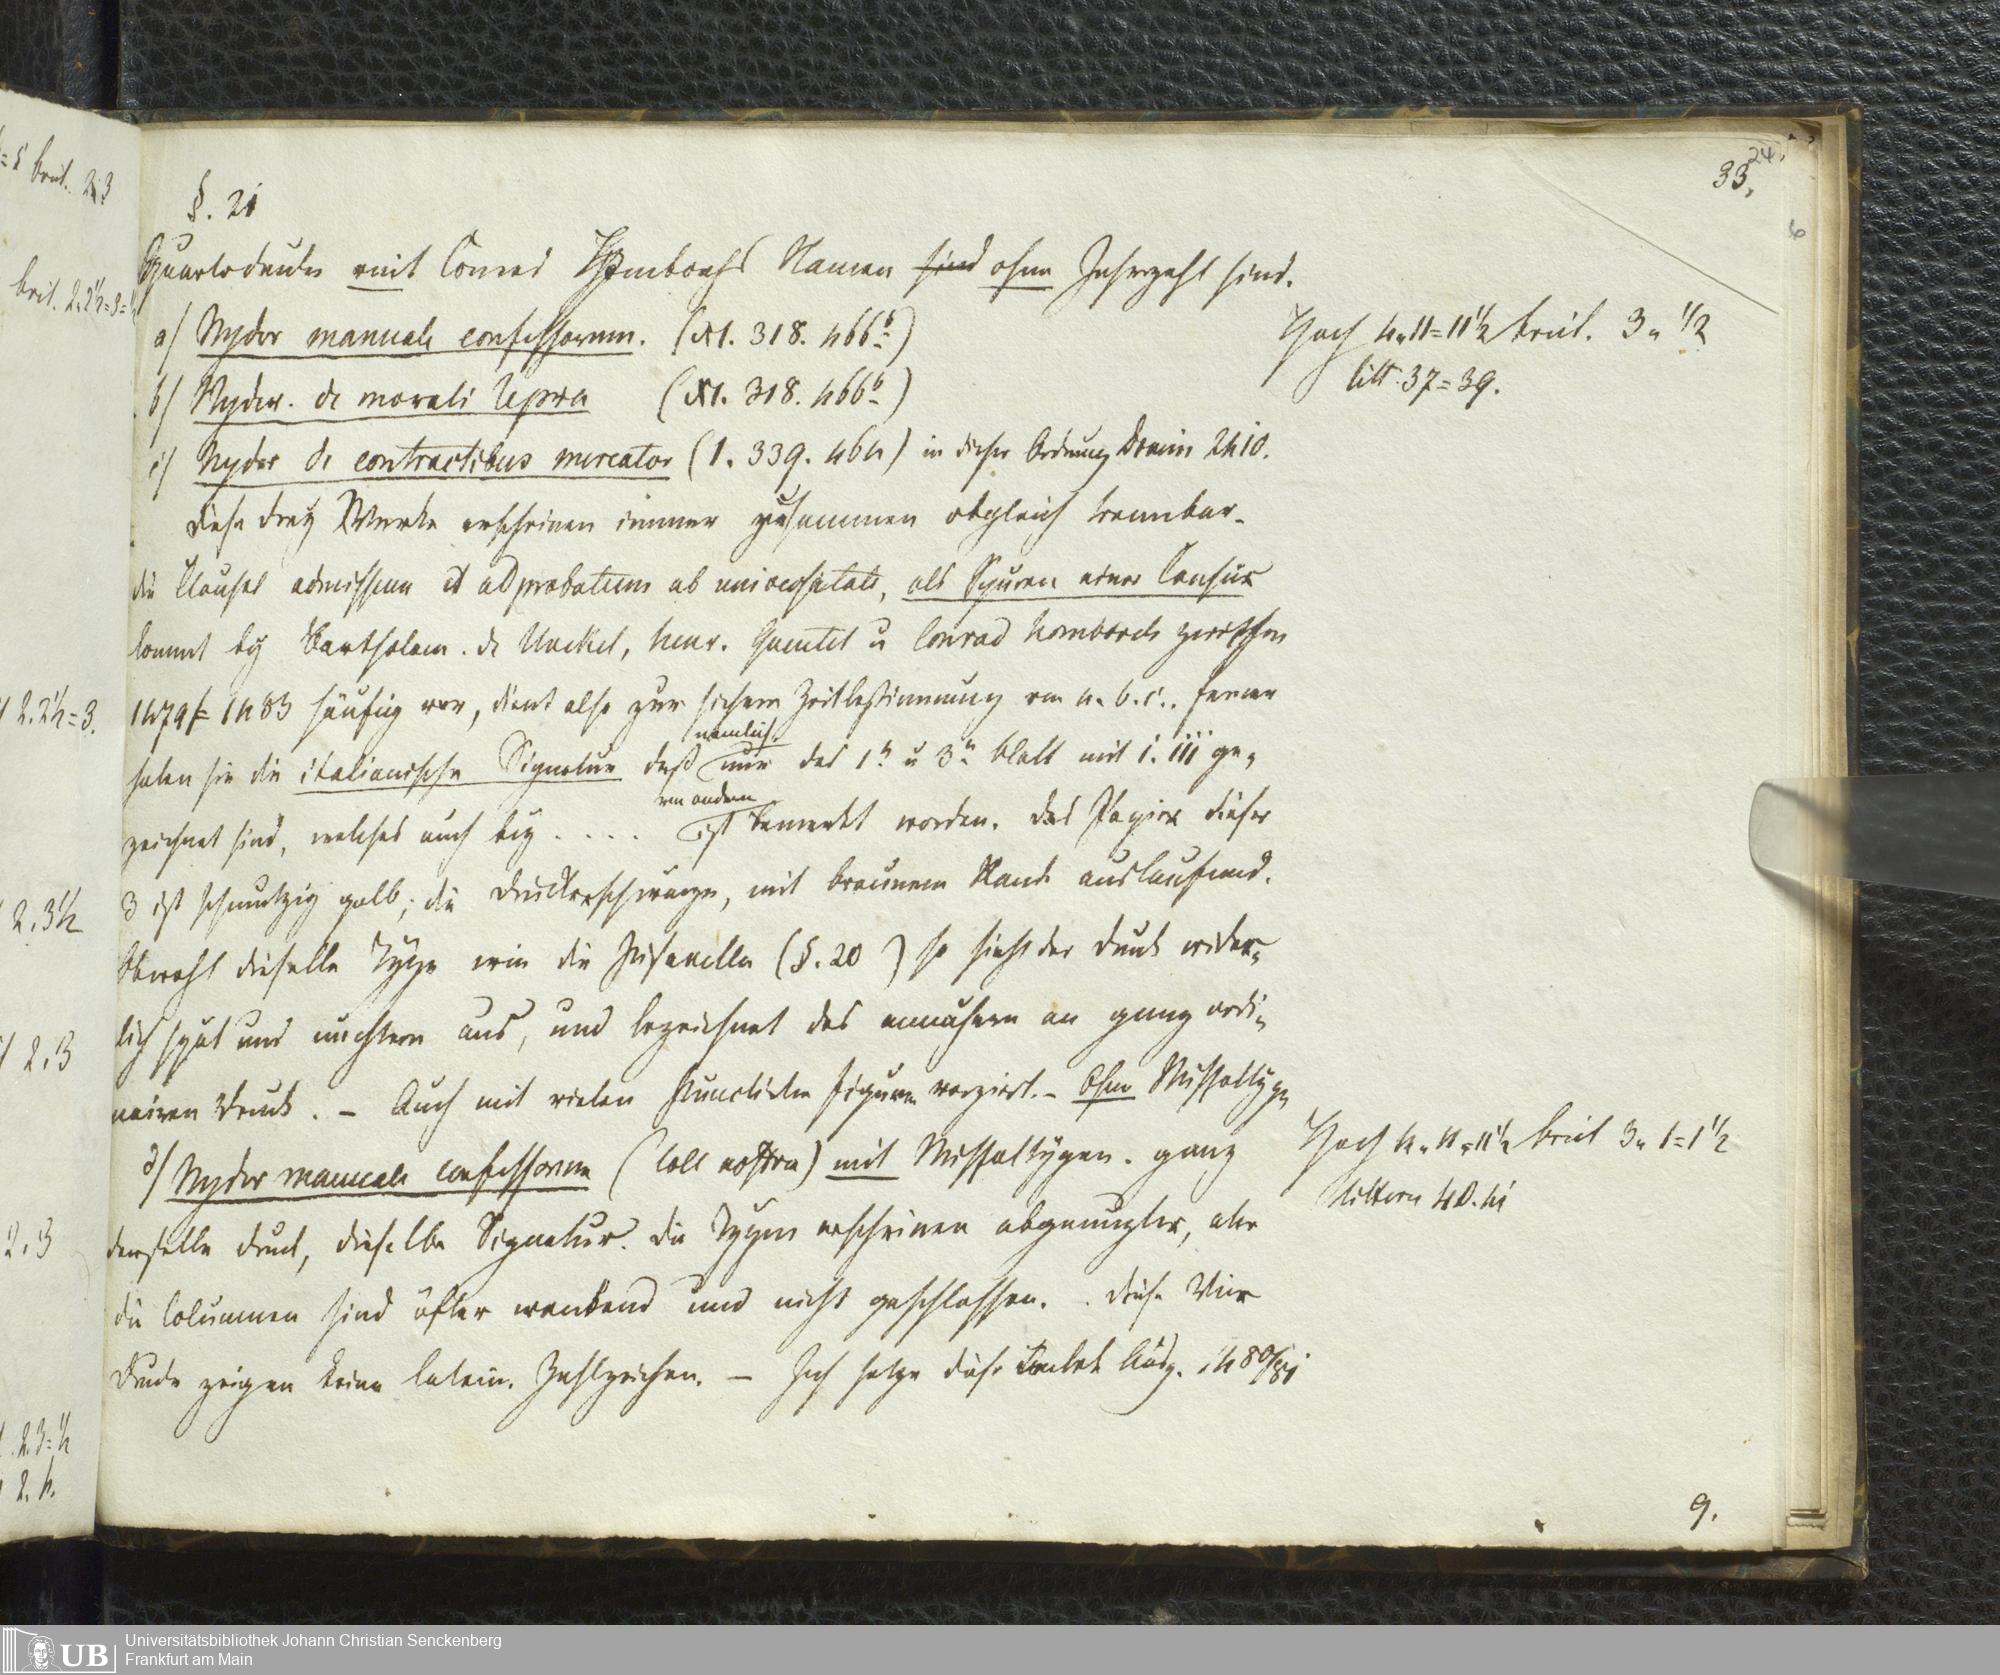 33.
24.
6
§. 21
Quartodrucke mit Conrad Homborchs Namen sind ohne Jahrzahl sind.
a) Nyder manuale confessorum. (XI. 318. 466b)
Hoch 4. 11=11½ breit. 3. ½
litt. 37=39.
b) Nyder. de morali lepra (XI. 318. 466b)
c) Nyder de contractibus mercator (I. 339. 464) in dieser Ordnung Denis
Diese drey Werke erscheinen immer zusammen obgleich trennbar.
die Clausel admissum et adprobatum ab universitate, als Spuren einer Censur
kommt bey Bartholom. de Unckel, henr. Quentel u Conrad homborch zwischen
1479= 1483 häufig vor, dient also zur sichern Zeitbestimmung von a. b. c. ferner
haben sie die italienische Signatur daß nemlich nur das 1n u 3n Blatt mit i. iii ge=
zeichnet sind, welches auch bey . . . . von andern ist bemerkt worden. Das Papier dieser
3 ist schmutzig gelb, die Druckerschwärze, mit braunem Rande auslaufend.
Obwohl dieselbe Type wie die (§. 20 ) so sieht der Druck wider=
lich spät und nüchtern aus, und bezeichnet das annähern an ganz ordi=
nairen Druck. — Auch mit vielen Figuren verziert. — Ohne Missaltype
d) Nyder manuale confessorum (Coll nostra) mit Missaltypen. ganz
Hoch 4. 11=11½ breit 3. 1=1½
littern 40. 41
derselbe Druck, dieselbe Signatur. die Typen erscheinen abgenutzter, aber
die Columnen sind öfter wankend und nicht geschlossen. . Diese Vier
Drucke zeigen keine latein. Zahlzeichen. — Ich setze diese 1480/81
9.
= 5 breit. 2. 3
breit. 2. 2½=3=½
2. 2½=3.
2. 3½
2. 3
2. 3
2. 3=½
2. 4.
UB
Universitätsbibliothek Johann Christian Senckenberg
Frankfurt am Main